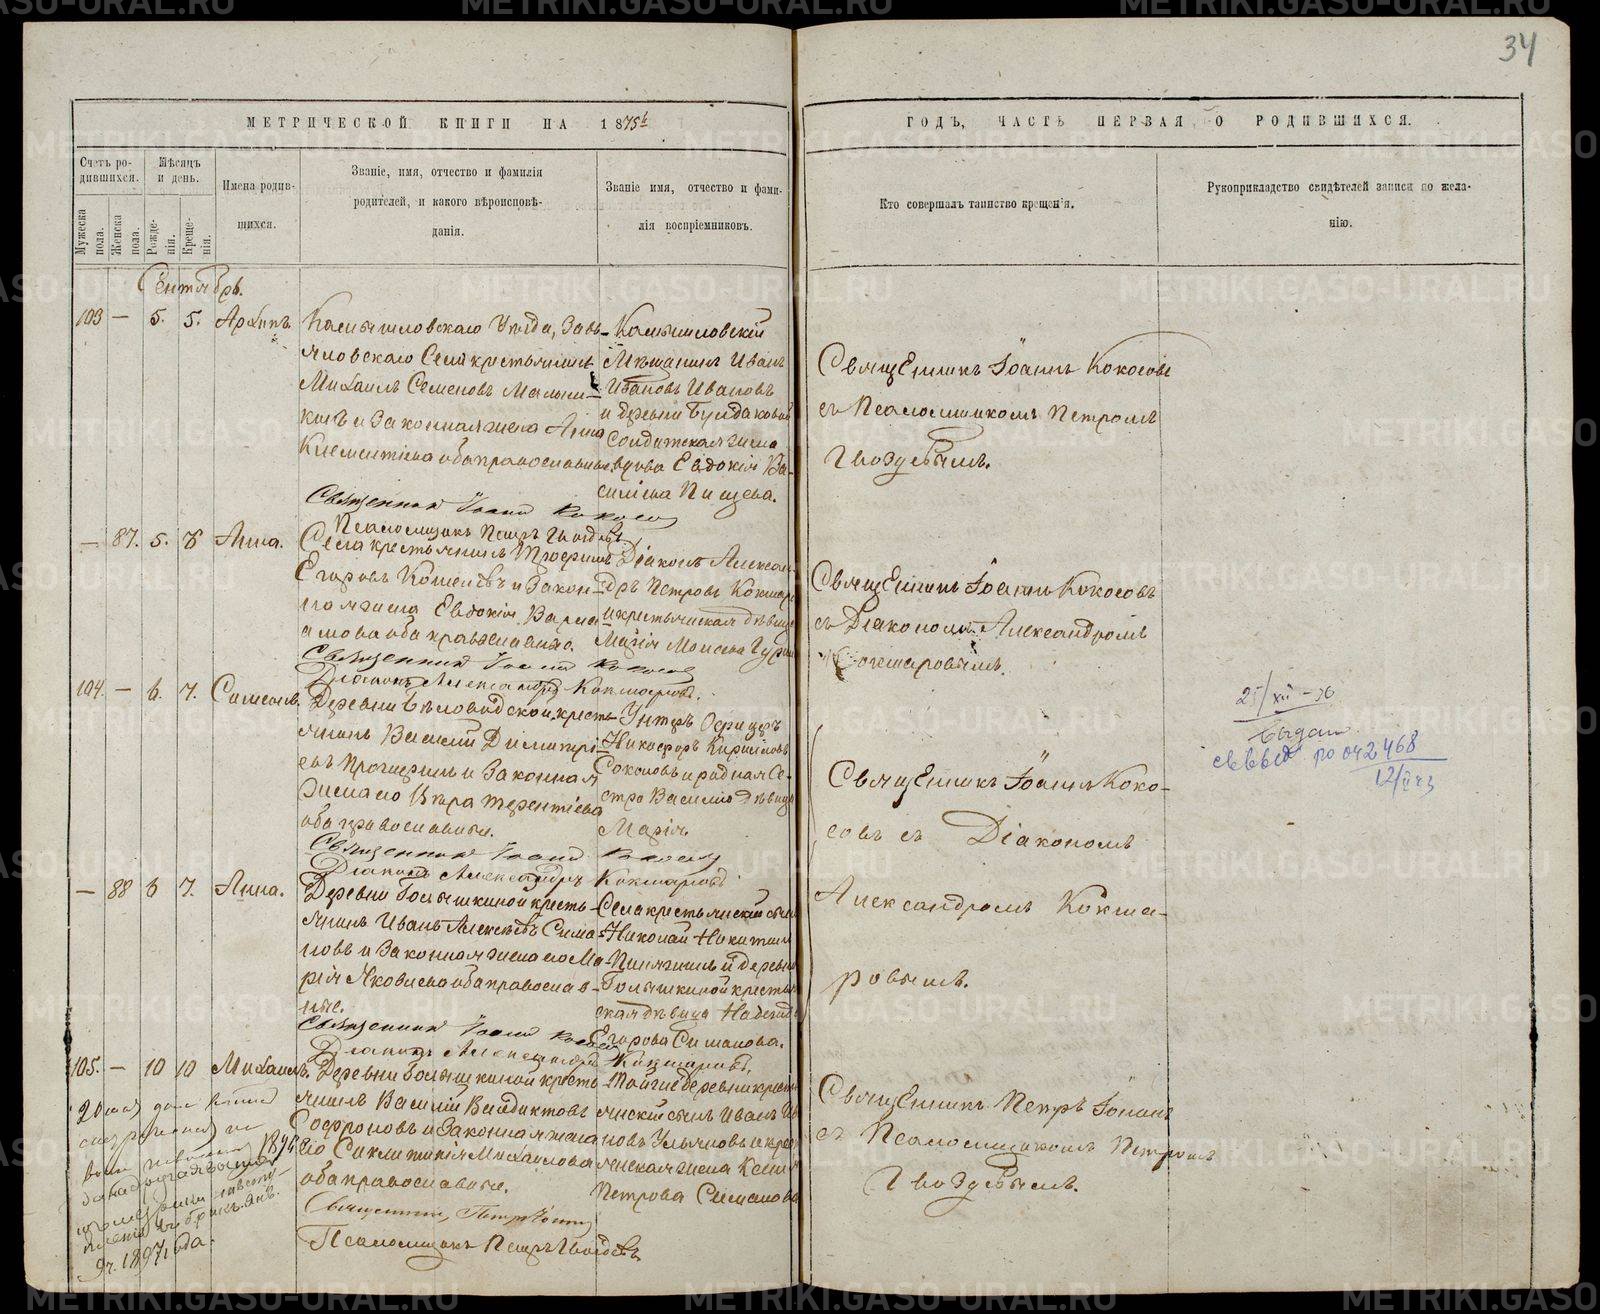 34
МЕТРИЧЕСКОЙ КНИГИ НА 1875й
ГОДЪ, ЧАСТЬ ПЕРВАЯ, О РОДИВШИХСЯ.
Счетъ ро-
дившихся.
Мѣсяцъ
и день.
Мужеска
пола.
Женска
пола.
Рожде-
нія.
Креще-
нія.
Имена родив-
шихся.
Званіе, имя, отчество и фамилія
родителей, и какого вѣроисповѣ-
данія.
Званіе имя, отчество и фами-
лія воспріемниковъ.
Кто совершалъ таинство крещенія.
Рукоприкладство свидѣтелей записи по жела-
нію.
Сентябрь.
103 — 5. 5. Архипъ.
Камышловскаго Уѣзда, Завь-
яловскаго Села крестьянинъ
Михаилъ Семеновъ
и законная жена Анна
Климентіева оба православные
Священникъ Іоаннъ Кокосовъ
Псаломщикъ Петръ Гвоздевъ
Камышловскій
Мѣщанинъ Иванъ
Ивановъ Ивановъ
и деревни Булдаковой
солдатская жена
вдова Евдокія Ва-
силіева Пищева.
Священникъ Іоаннъ Кокосовъ
съ Псаломщикомъ Петромъ
Гвоздевымъ.
— 87. 5. 6 Анна.
Села крестьянинъ Трофимъ
Егоровъ и закон-
ная жена Евдокія Варла-
амова оба православные.
Священникъ Іоаннъ Кокосовъ
Діаконъ Александръ Кокшаровъ.
Діаконъ Алексан-
дръ Петровъ Кокшаро
и крестьянская дѣвица
Марія Моисеева
Священникъ Іоаннъ Кокосовъ
съ Діакономъ Александромъ
Кокшаровымъ.
104. — 6. 7. Симеонъ.
Деревни Бѣловодской кресть-
янинъ Василій Димитрі-
евъ и законная
жена его Вѣра Терентіева
оба православные.
Священникъ Іоаннъ Кокосовъ
Діаконъ Александръ Кокшаровъ
Унтеръ Офицеръ
Никифоръ Кирилловъ
Соколовъ и родная се-
стра Василія дѣвица
Марія.
Священникъ Іоаннъ Коко-
совъ съ Діакономъ
Александромъ Кокша-
ровымъ.
25/XII – 36
Выдан
свид по 042468
12/II 43
— 88 6 7. Анна.
Деревни Голышкиной кресть-
янинъ Иванъ Алексѣевъ Сима-
новъ и законная жена его Ма-
рія Яковлева оба православ-
ные.
Священникъ Іоаннъ Кокосовъ
Діаконъ Александръ Кокшаровъ.
Села крестьянскій сынъ
Николай Никитинъ
и деревни
Голышкиной крестьян
ская дѣвица Надежда
Егорова Симанова.
105. — 10 10 Михаилъ.
Деревни Голышкиной кресть-
янинъ Василій Венидиктовъ
Софроновъ и законная жена
его Синклитикія Михаилова
оба православные.
Священникъ, Петръ
Псаломщикъ Петръ Гвоздевъ
Той же деревни кресть
янскій сынъ Иванъ Ив
новъ Ульяновъ и кре
янская жена Ксені
Петрова Симанова
Священникъ Петръ
съ Псаломщикомъ Петромъ
Гвоздевымъ.
1896
9 г. 1897 года.